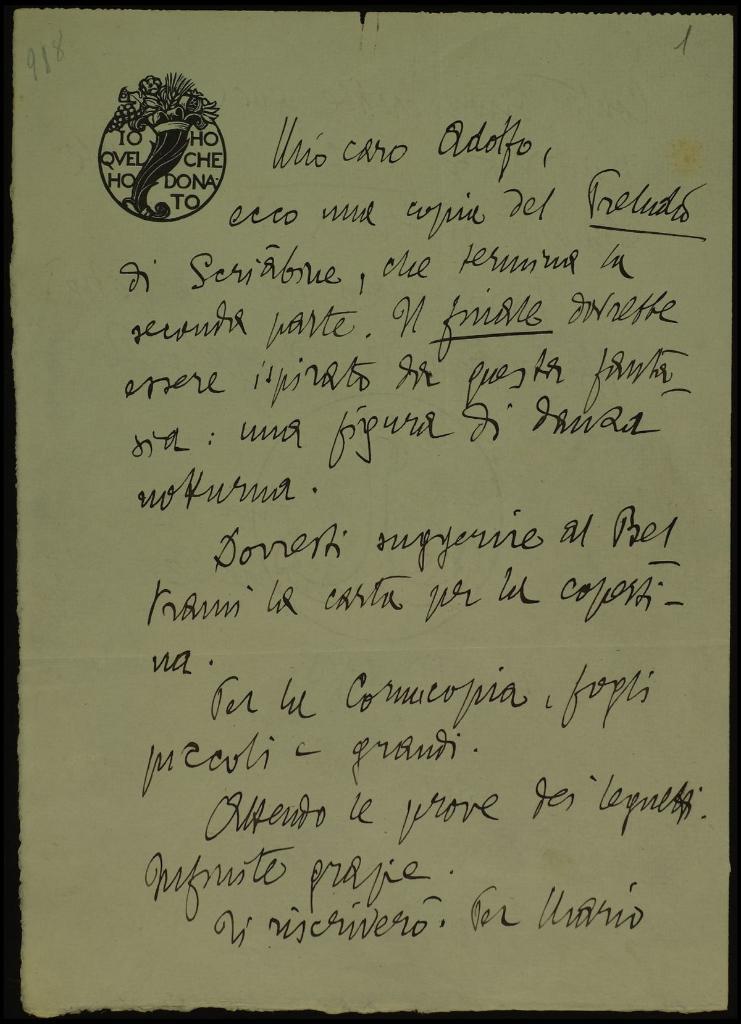 918
1
IO HO
QVEL CHE
HO DONA
TO
Mio caro Adolfo,
ecco una copia del Preludio
di Scriàbine, che termina la
seconda parte. Il finale dovrebbe
essere ispirato da questa fanta-
sia: una figura di danza
notturna.
Dovresti suggerire al Bel
trami la carta per la coperti-
na.
Per la Cornucopia, fogli
piccoli e grandi.
Attendo le prove dei legnetti.
Infinite grazie.
Ti riscriverò. Per Mario